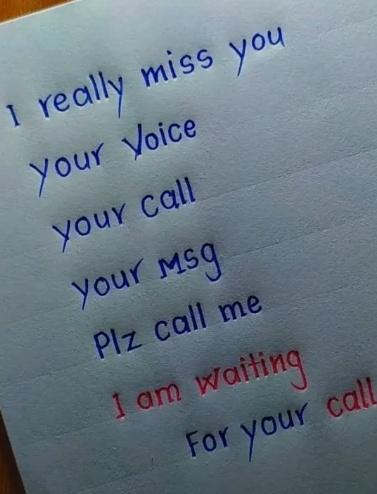 I really miss you
your voice
your call
your Msg
Plz call me
I am waiting
For your call